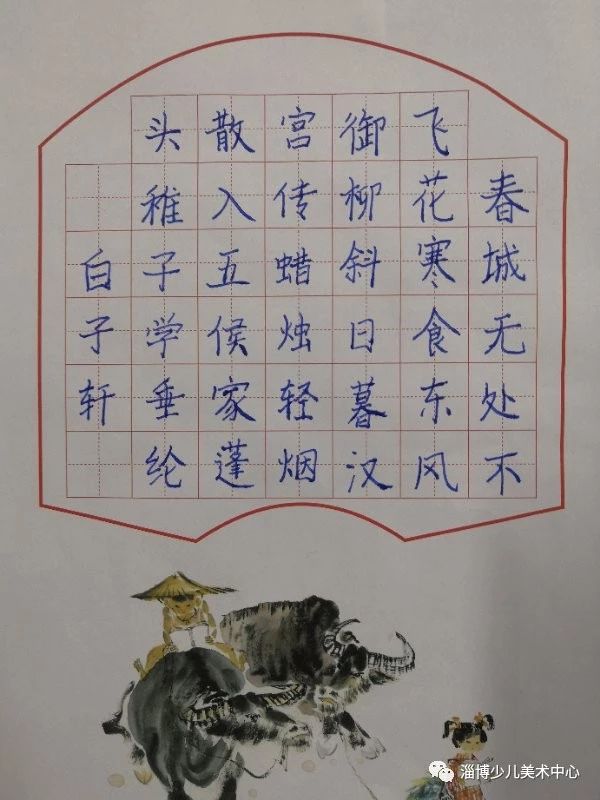 春城无处不
飞花寒食东风
御柳斜日暮汉
宫传蜡烛轻烟
散入五侯家蓬
头稚子学垂纶
白子轩
淄博少儿美术中心